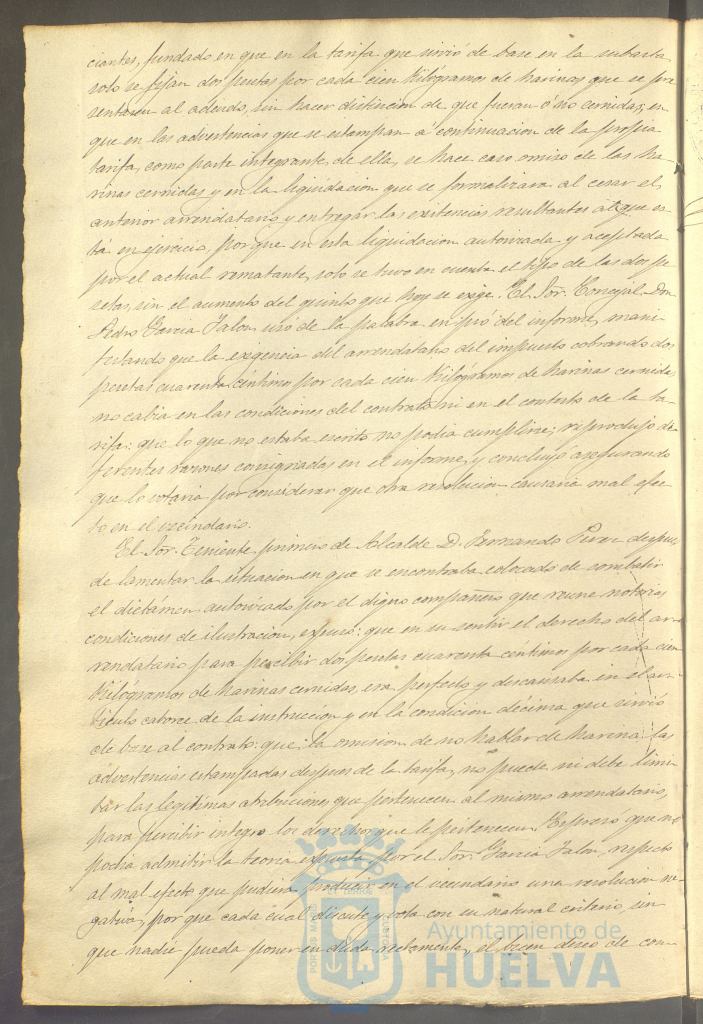 ciantes, fundado en que en la tarifa que sirvió de base en la subasta
solo se fijan dos pesetas por cada cien Kilógramos de harinas que se pre-
sentaren al adeudo, sin hacer distincion de que fueran ó no cernidas; en
que en las advertencias que se estampan á continuacion de la propia
tarifa, como parte integrante de ella, se hace caso omiso de las ha-
rinas cernidas y en la liquidacion que se formalizara al cesar el
anterior arrendatario y entregar las existencias resultantes al que es-
tá en ejercicio, porque en esta liquidacion autorizada y aceptada
por el actual rematante, solo se tuvo en cuenta el tipo de las dos pe-
setas, sin el aumento del quinto que hoy se exige. El Sor. Concejal Don
Pedro Garcia Jalon usó de la palabra en pró del informe, mani-
festando que la exigencia del arrendatario del impuesto cobrando dos
pesetas cuarenta céntimos por cada cien Kilógramos de harinas cernidas
no cabia en las condiciones del contrato ni en el contesto de la ta-
rifa: que lo que no estaba escrito no podia cumplirse; reprodujo di-
ferentes razones consignadas en el informe, y concluyó asegurando
que lo votaria por considerar que otra resolucion causaria mal efec-
to en el vecindario.
El Sor. Teniente primero de Alcalde D. Fernando Perez despues
de lamentar la situacion en que se encontraba colocado de combatir
el dictámen autorizado por el digno compañero que reune notorias
condiciones de ilustracion, expuso: que en su sentir el derecho del ar-
rendatario para percibir dos pesetas cuarenta céntimos por cada cien
Kilógramos de harinas cernidas, era perfecto y descansaba en el ar-
tículo catorce de la instruccion y en la condicion décima que sirvió
de base al contrato: que la omision de no hablar de harina las
advertencias estampadas despues de la tarifa, no puede ni debe limi-
tar las legítimas atribuciones que pertenecen al mismo arrendatario,
para percibir integro los derechos que le pertenecen. Espresó que no
podia admitir la teoria expuesta por el Sor. Garcia Jalon, respecto
al mal efecto que pudiera producir en el vecindario una resolucion ne-
gativa, por que cada cual discute y vota con su natural criterio, sin
que nadie pueda poner en duda rectamente, el buen deseo de con-
Ayuntamiento de
HUELVA